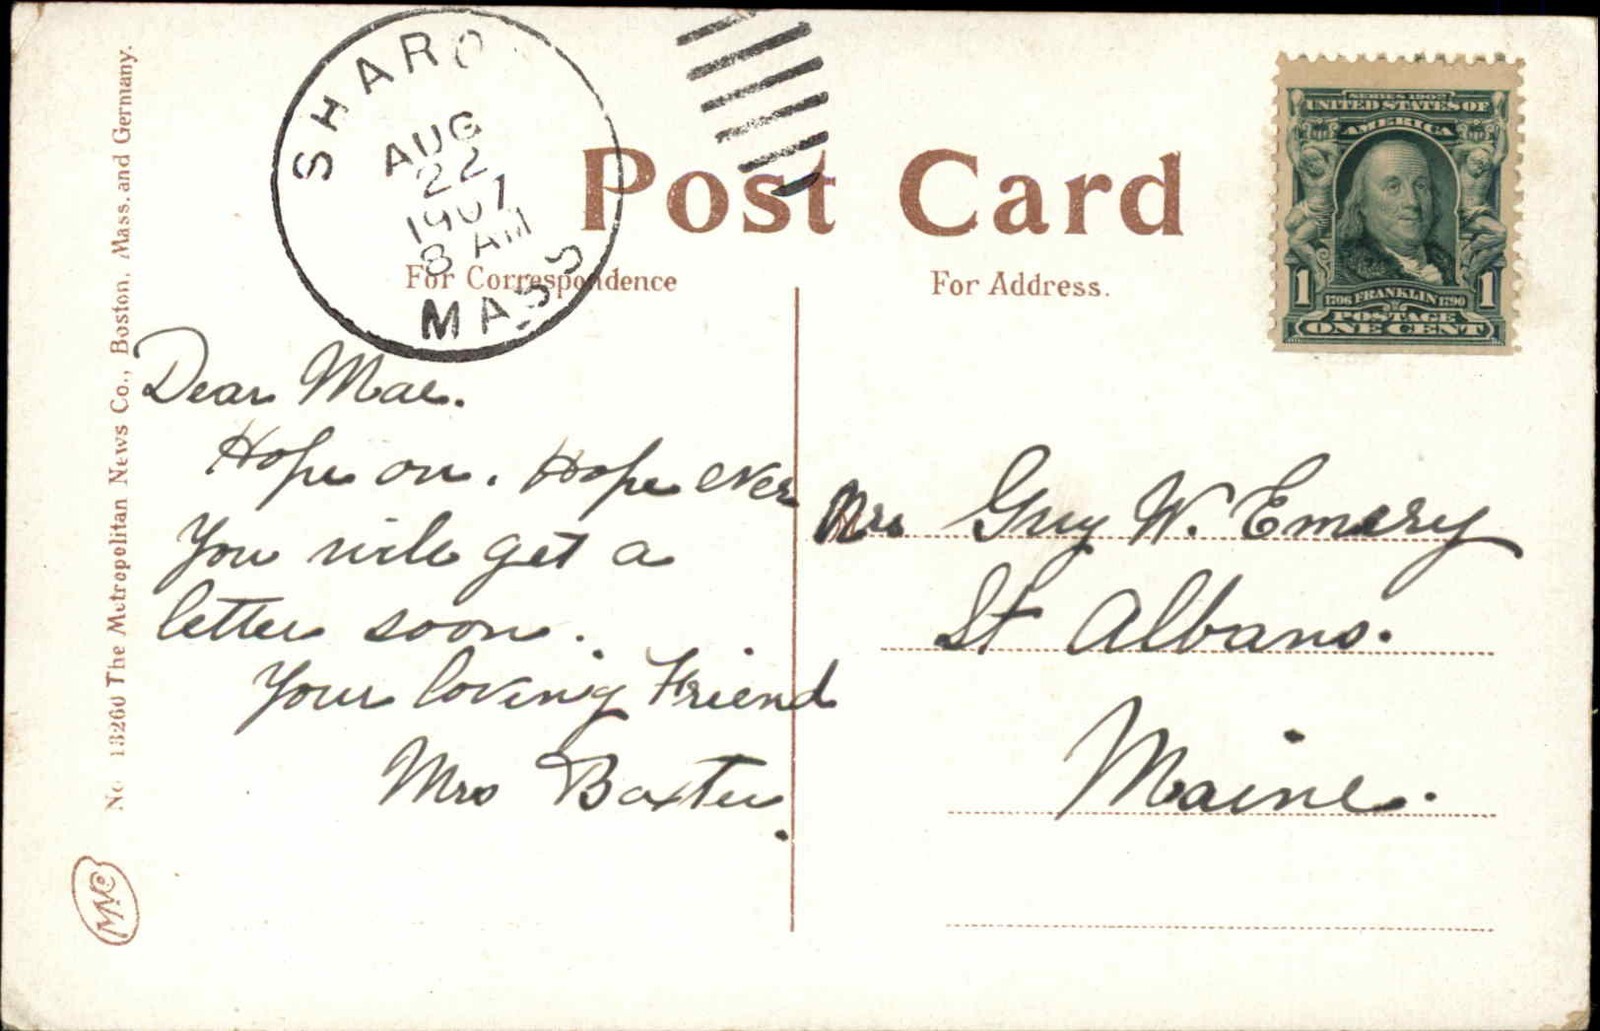 SHARO
AUG
22
1907
8 AM
MASS
Post Card
For Correspondence
For Address.
SERIES 1902
UNITED STATES OF
AMERICA
1 1
1706 FRANKLIN 1790
POSTAGE
ONE CENT
Dear Mae.
Hope on. Hope ever
You will get a
letter soon.
Your loving Friend
Mrs Baxter.
Mrs Guy W. Emery
St Albans.
Maine.
No. 13260 The Metropolitan News Co., Boston, Mass. and Germany.
MNC